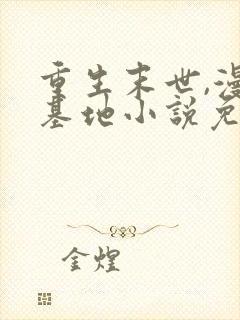 重生末世,漫
基地小説免
金煌